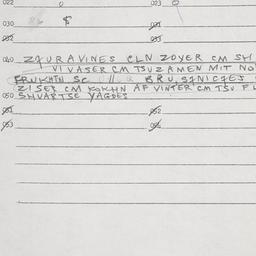 022 0 023 0
030 $ 031
032 033
040 ZHURAVINES CLN ZOYER CM SH
VI VASER CM TSUZAMEN MIT NO
FRUKHTN SC // BRUSZNICZES
ZISER CM KOKHN AF VINTER CM TSU FL
050 SHVARTSE YAGDES
051 052
053 054